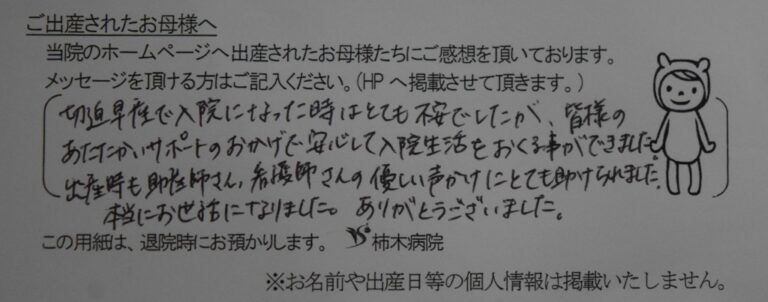 ご出産されたお母様へ
当院のホームページへ出産されたお母様たちにご感想を頂いております。
メッセージを頂ける方はご記入ください。(HPへ掲載させて頂きます。)
切迫早産で入院になった時はとても不安でしたが、皆様の
あたたかいサポートのおかげで安心して入院生活をおくる事ができました。
出産時も助産師さん、看護師さんの優しい声かけにとても助けられました。
本当にお世話になりました。ありがとうございました。
この用紙は、退院時にお預かりします。 柿木病院
※お名前や出産日等の個人情報は掲載いたしません。